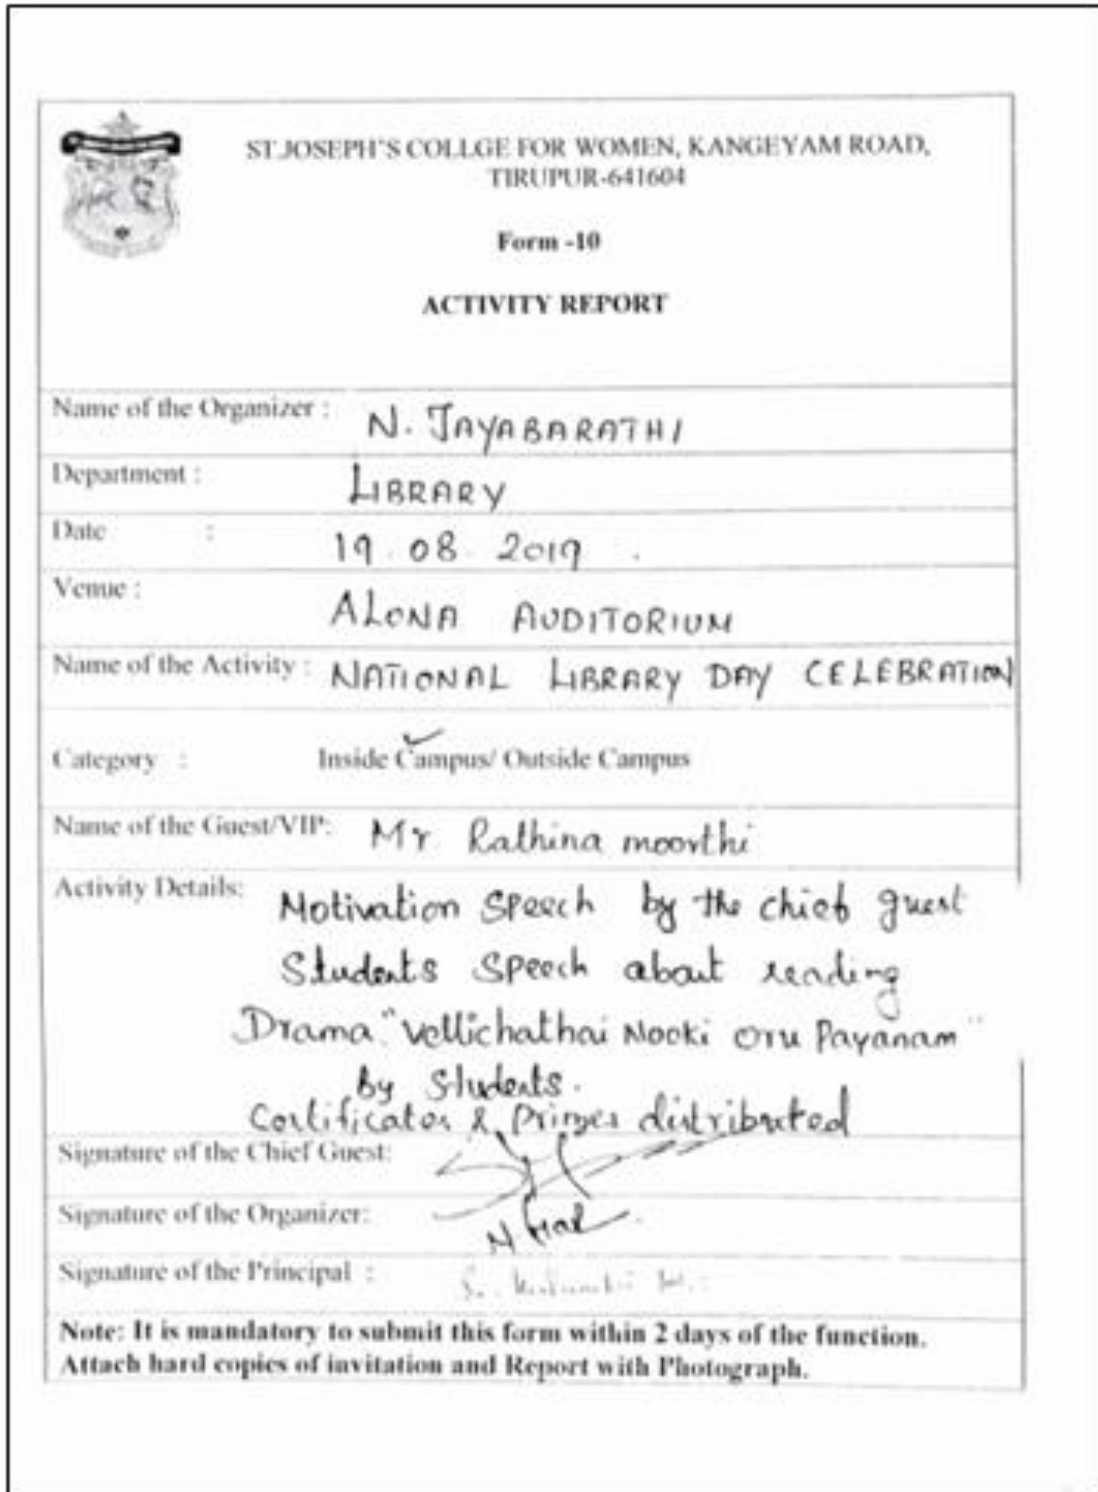 ST.JOSEPH'S COLLGE FOR WOMEN, KANGEYAM ROAD,
TIRUPUR-641604
Form -10
ACTIVITY REPORT
Name of the Organizer : N. JAYABARATHI
Department : LIBRARY
Date : 19.08.2019.
Venue : ALONA AUDITORIUM
Name of the Activity : NATIONAL LIBRARY DAY CELEBRATION
Category : Inside Campus/ Outside Campus
Name of the Guest/VIP: Mr. Rathina moorthi
Activity Details: Motivation Speech by the chief guest
Students Speech about reading
Drama "Vellichathai Nooki oru Payanam"
by Students.
Certificates & Prizes distributed
Signature of the Chief Guest:
Signature of the Organizer:
Signature of the Principal :
Note: It is mandatory to submit this form within 2 days of the function.
Attach hard copies of invitation and Report with Photograph.